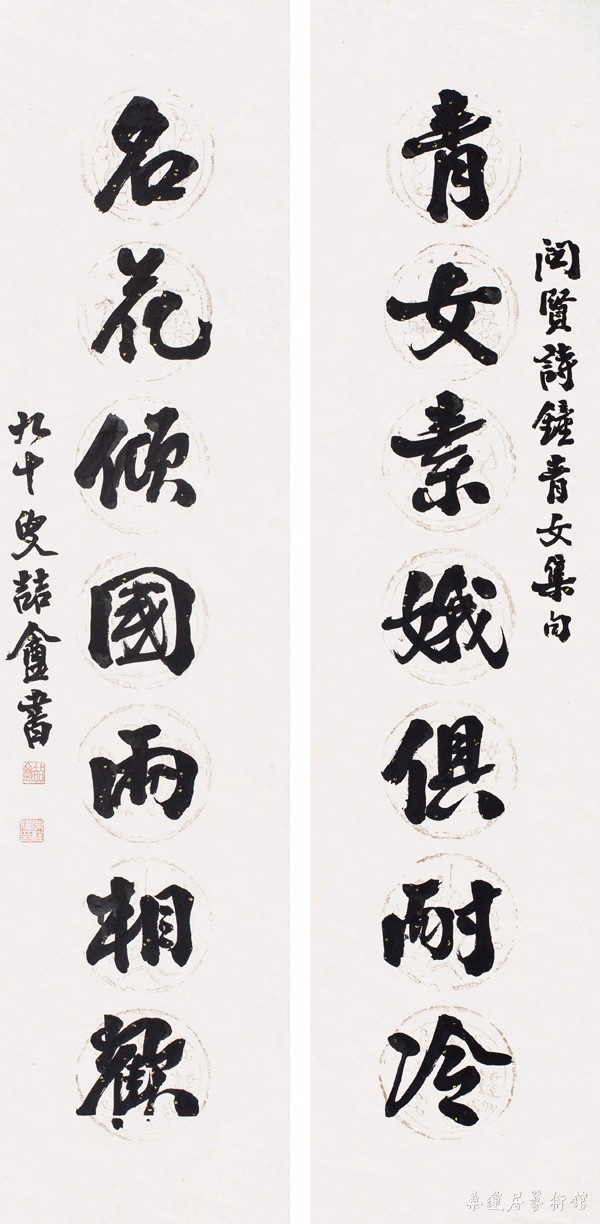 閩賢詩鐘青女集句
青女素娥俱耐冷
名花傾國兩相歡
九十叟喆盦書
桑蓮居藝術館